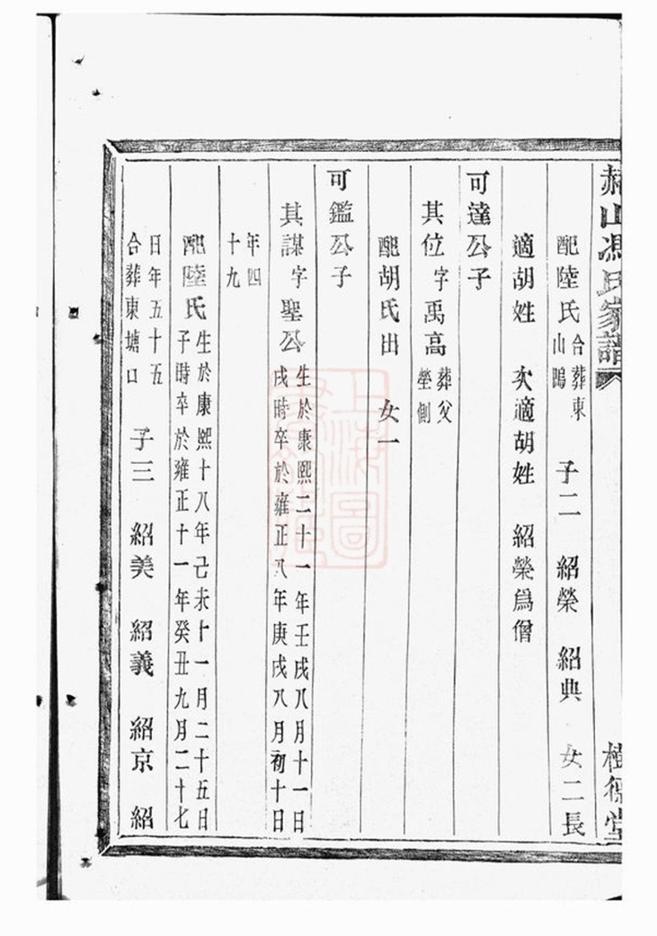 赫山馮氏家譜
樹德堂
配陸氏合葬東山鴫 子二 紹榮 紹典 女二長
適胡姓 次適胡姓 紹榮爲僧
可達公子
其位字禹高葬父塋側
配胡氏出 女一
可鑑公子
其謀字聖公生於康熙二十一年壬戌八月十一日戌時卒於雍正八年庚戌八月初十日
年四十九
配陸氏生於康熙十八年己未十一月二十五日子時卒於雍正十一年癸丑九月二十七
日年五十五合葬東塘口 子三 紹美 紹義 紹京 紹